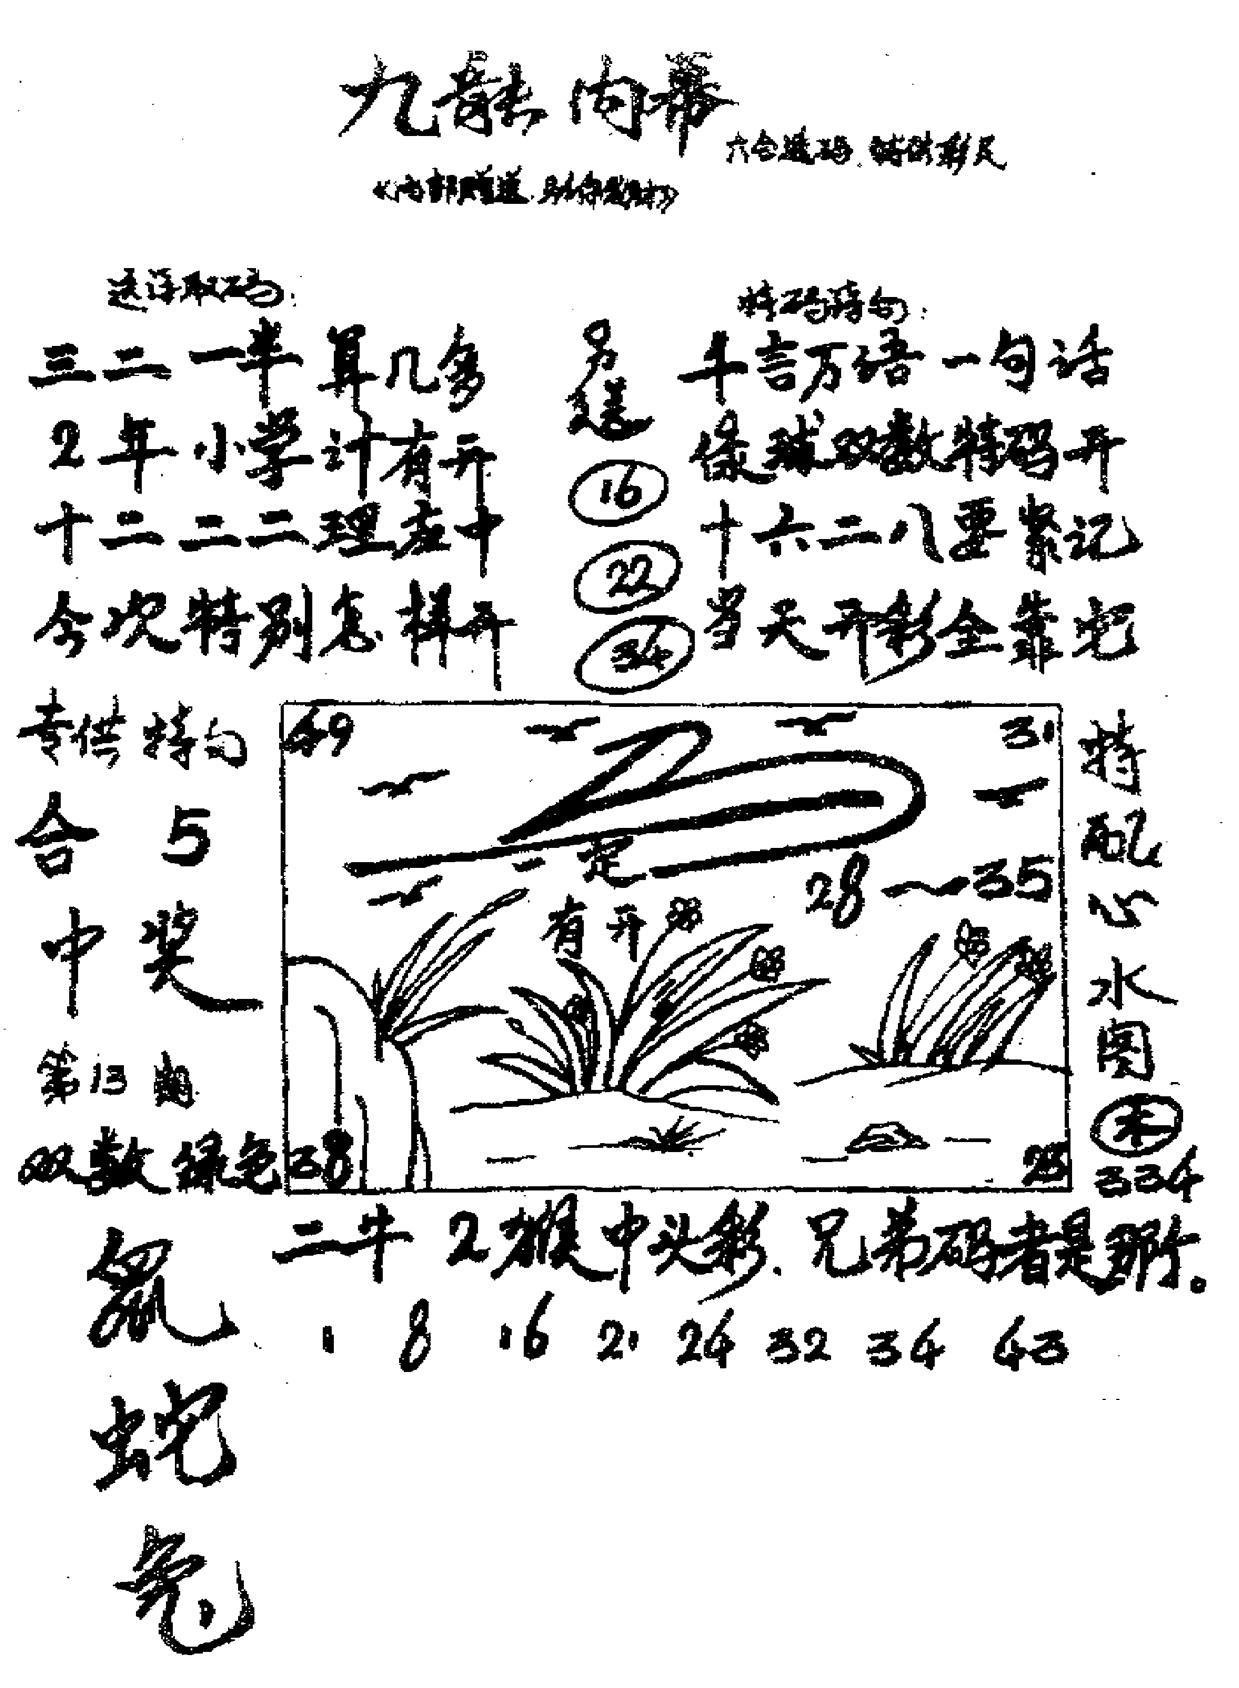 九龍内幕
六合送码 特供彩民
《内部赠送 助你发财》
送诗取码:
三二一半算几多
2年小学计有开
十二二二理应中
今次特别怎样开
另送
16
22
34
特码诗句:
千言万语一句话
绿球双数特码开
十六二八要紧记
当天开彩全靠它
专供特句
合5
中奖
第13期
双数绿色
鼠
蛇
兔
49
31
一定
有开
28～35
38
23
特配心水图
本
334
二牛2猴中头彩、兄弟码者是那个。
1 8 16 21 24 32 34 43